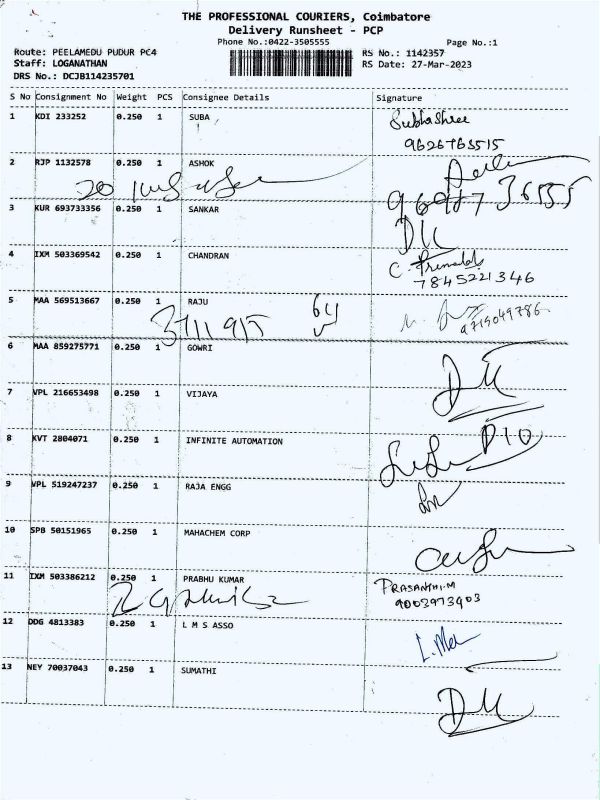 THE PROFESSIONAL COURIERS, Coimbatore
Delivery Runsheet - PCP
Phone No.:0422-3505555
Page No.:1
Route: PEELAMEDU PUDUR PC4
RS No.: 1142357
Staff: LOGANATHAN
RS Date: 27-Mar-2023
DRS No.: DCJB114235701
S No Consignment No Weight PCS Consignee Details Signature
1 KDI 233252 0.250 1 SUBA Subhashree
9626763515
2 RJP 1132578 0.250 1 ASHOK
3 KUR 693733356 0.250 1 SANKAR
4 IXM 503369542 0.250 1 CHANDRAN
7845221346
5 MAA 569513667 0.250 1 RAJU
6 MAA 859275771 0.250 1 GOWRI
7 VPL 216653498 0.250 1 VIJAYA
8 KVT 2804071 0.250 1 INFINITE AUTOMATION
9 VPL 519247237 0.250 1 RAJA ENGG
10 SPB 50151965 0.250 1 MAHACHEM CORP
11 IXM 503386212 0.250 1 PRABHU KUMAR PRASANTHI.M
9003973903
12 DDG 4813383 0.250 1 L M S ASSO
13 NEY 70037043 0.250 1 SUMATHI